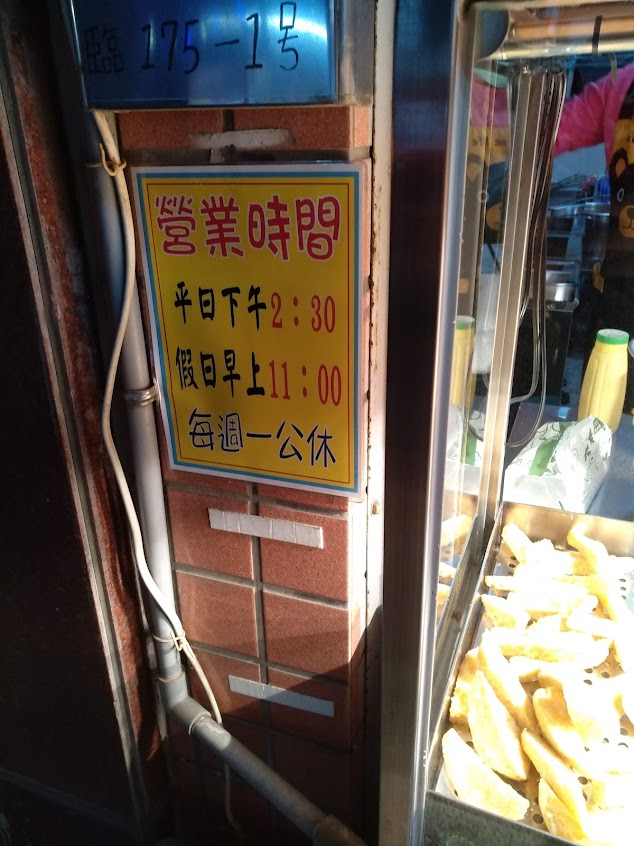 臨 175-1号
營業時間
平日下午2:30
假日早上11:00
每週一公休